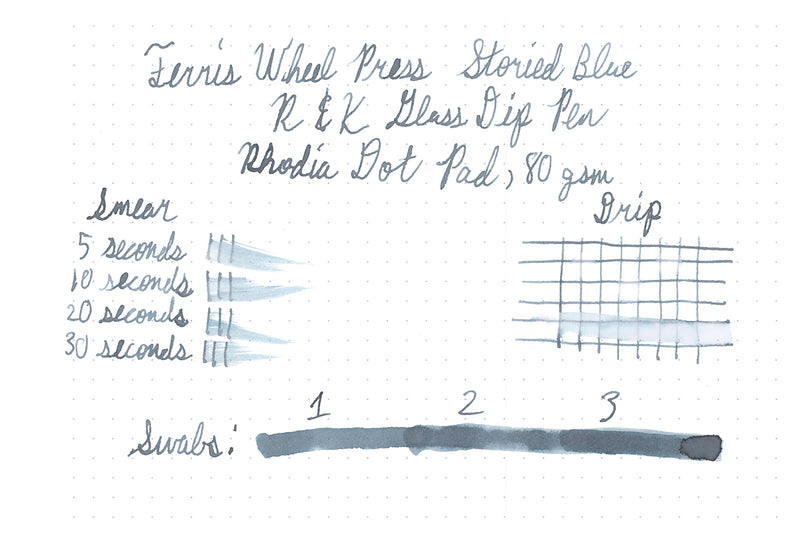 Ferris Wheel Press Storied Blue
R & K Glass Dip Pen
Rhodia Dot Pad, 80 gsm
Smear
5 seconds
10 seconds
20 seconds
30 seconds
Drip
1 2 3
Swabs: